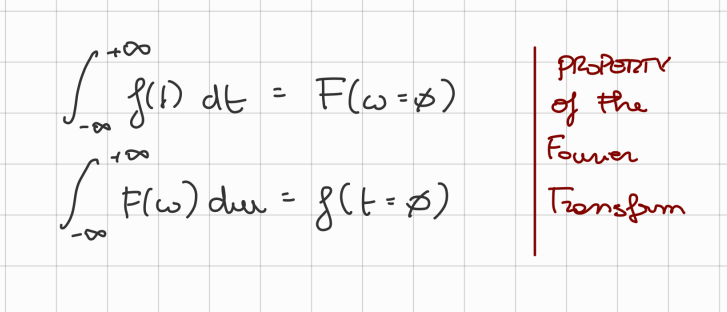 ∫_{-∞}^{+∞} f(t) dt = F(ω=ø)
∫_{-∞}^{+∞} F(ω) dω = f(t=ø)
PROPERTY
of the
Fourier
Transform